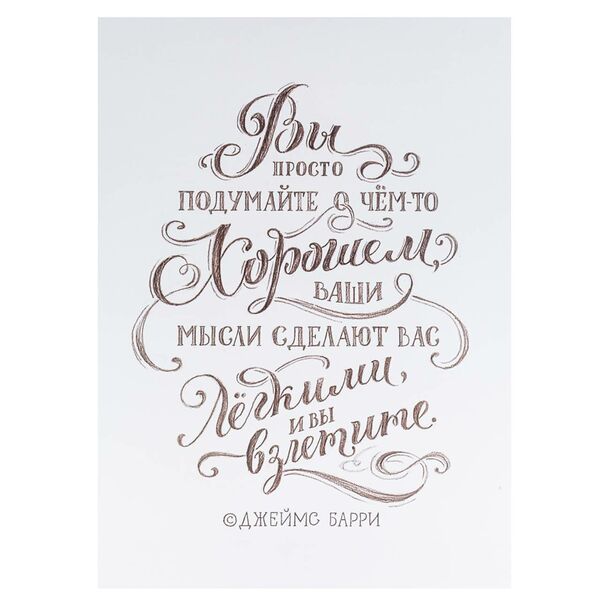 Вы
просто
подумайте о чём-то
хорошем,
ваши
мысли сделают вас
лёгкими,
и вы
взлетите.
©Джеймс Барри